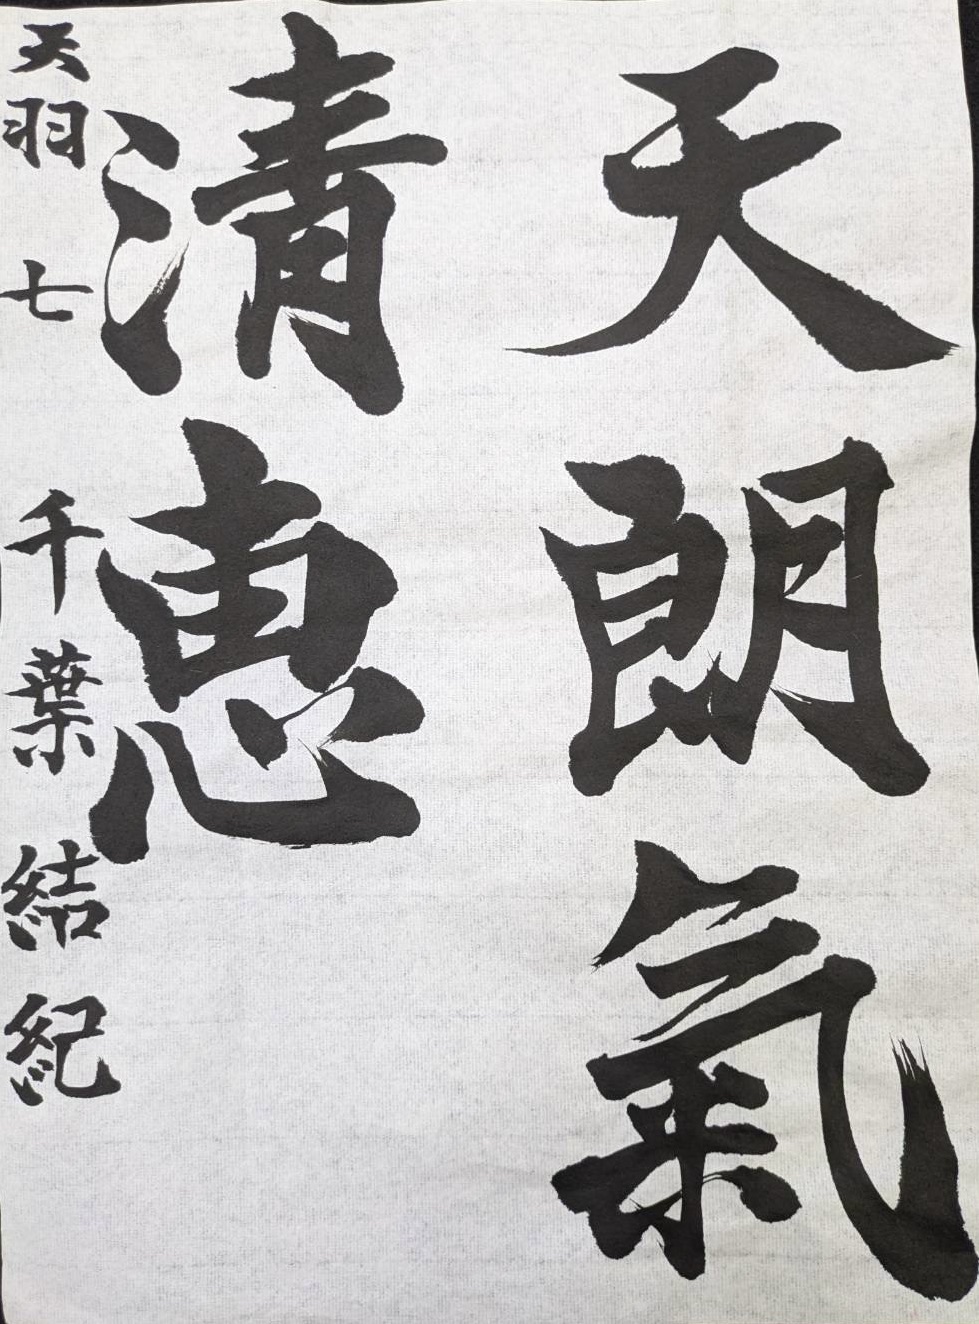 天朗氣
清恵
天羽 七 千葉 結紀